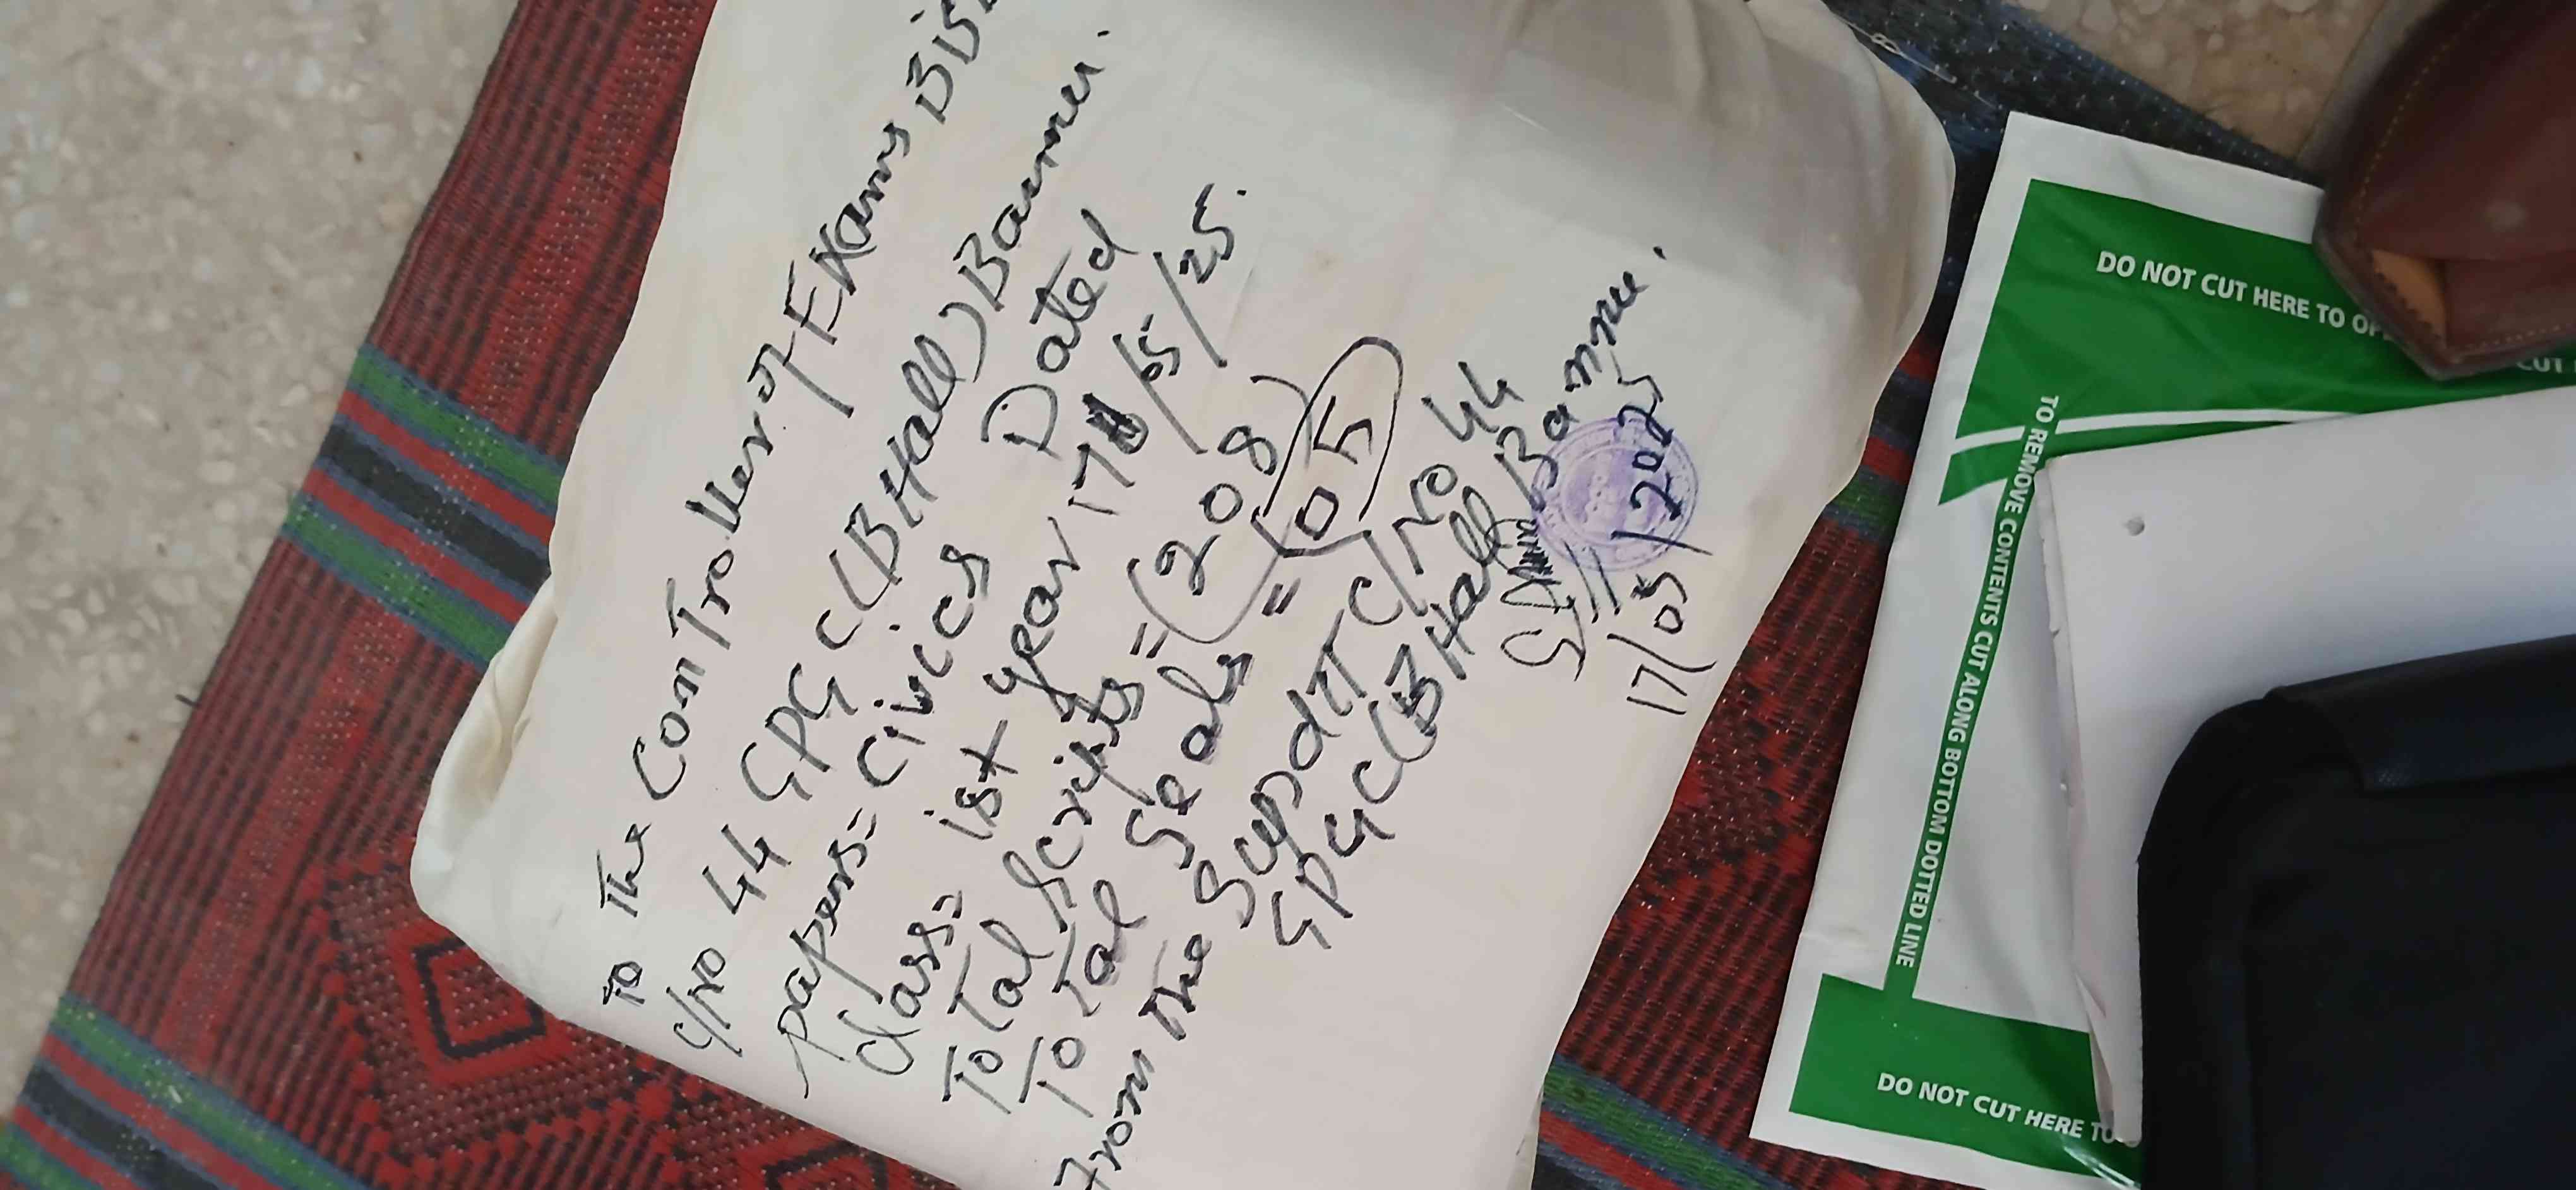 To The ConTroller of EXams BIS
C/No 44 GPGC (B Hall) Bannu.
papers= Civics Dated
class= ist year 17/05/25.
ToTal scripts = (208)
ToTal Seals = (05)
From The SupdtT C/No 44
GPGC (B Hall) Bannu.
17/05/2025
DO NOT CUT HERE TO OP
CUT
TO REMOVE CONTENTS CUT ALONG BOTTOM DOTTED LINE
DO NOT CUT HERE TO